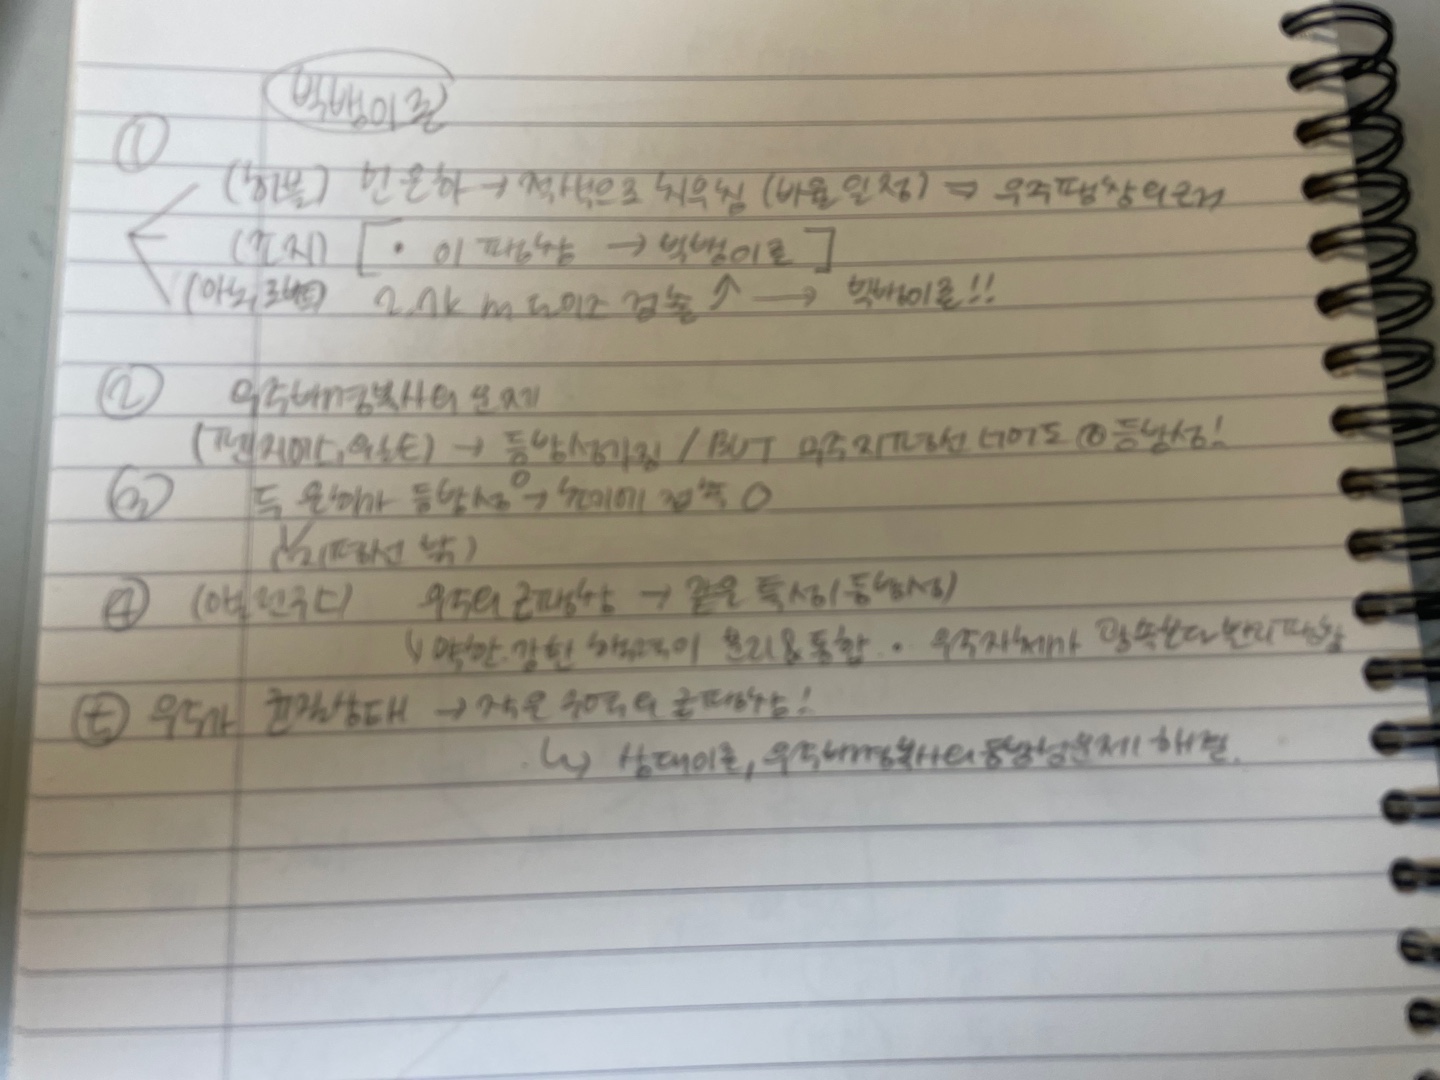 빅뱅이론
①
(허블) 먼 은하 → 적색으로 치우침 (비율 일정) ⇒ 우주팽창의 근거
[ · 이 팽창 → 빅뱅이론 ]
2.7k 검출 ↑ → 빅뱅이론!!
② 우주배경복사의 문제
(펜지어스, 윌슨) → 등방성가짐 / BUT 우주지평선 너머도 등방성!
③ 두 은하가 등방성 → 초기에 접촉 O
지평선 밖)
④ 우주의 급팽창 → 같은 특성(등방성)
↳ 약한·강한 핵력이 분리&통합 · 우주자체가 광속보다 빨리 팽창
⑤ 우주가 균질상태 → 작은 영역의 급팽창!
↳ 상대이론, 우주배경복사의 등방성문제 해결.